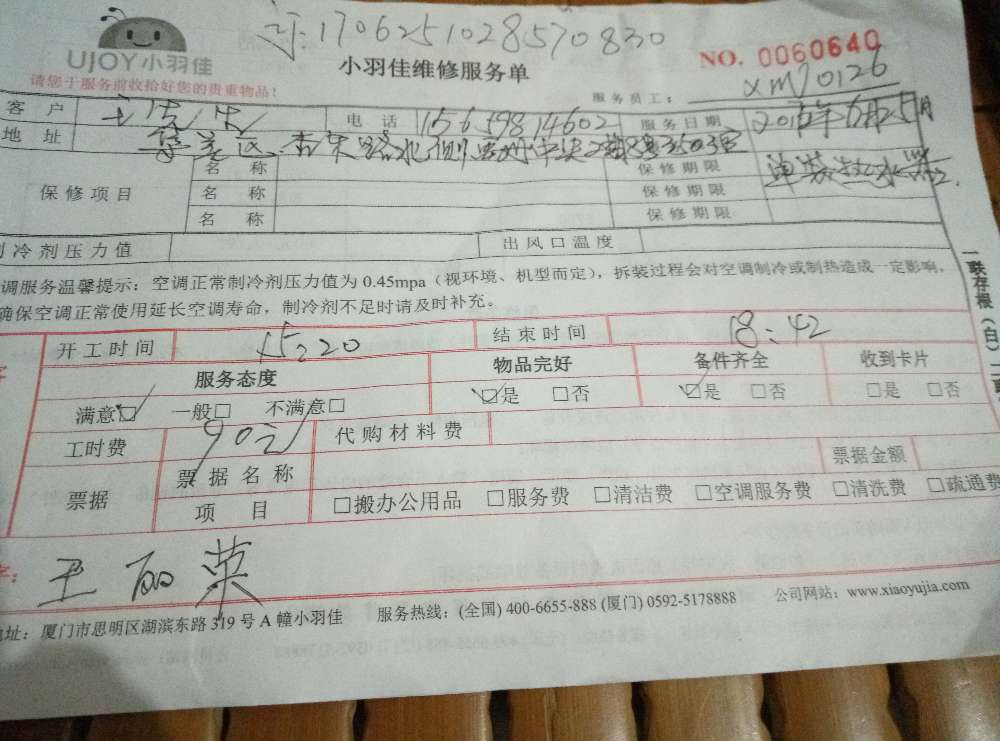 1706251028570830
UJOY小羽佳
小羽佳维修服务单
NO. 0060640
请您于服务前收拾好您的贵重物品!
服务员工: xm70126
客 户 王先生 电 话 15659814602 服务日期
地 址 集美区杏
保修项目
名 称 保修期限
名 称 保修期限
名 称 保修期限
冷剂压力值 出风口温度
调服务温馨提示: 空调正常制冷剂压力值为 0.45mpa (视环境、机型而定), 拆装过程会对空调制冷或制热造成一定影响,
确保空调正常使用延长空调寿命, 制冷剂不足时请及时补充。
开工时间 15:20 结束时间 18:42
服务态度 物品完好 备件齐全 收到卡片
满意☑ 一般□ 不满意□ ☑是 □否 ☑是 □否 □是 □否
工时费 90元 代购材料费
票据 票据名称 票据金额
项 目 □搬办公用品 □服务费 □清洁费 □空调服务费 □清洗费 □疏通费
王丽菜
地址: 厦门市思明区湖滨东路 319 号 A 幢小羽佳 服务热线: (全国) 400-6655-888 (厦门) 0592-5178888 公司网站: www.xiaoyujia.com
一联存根(白)二联